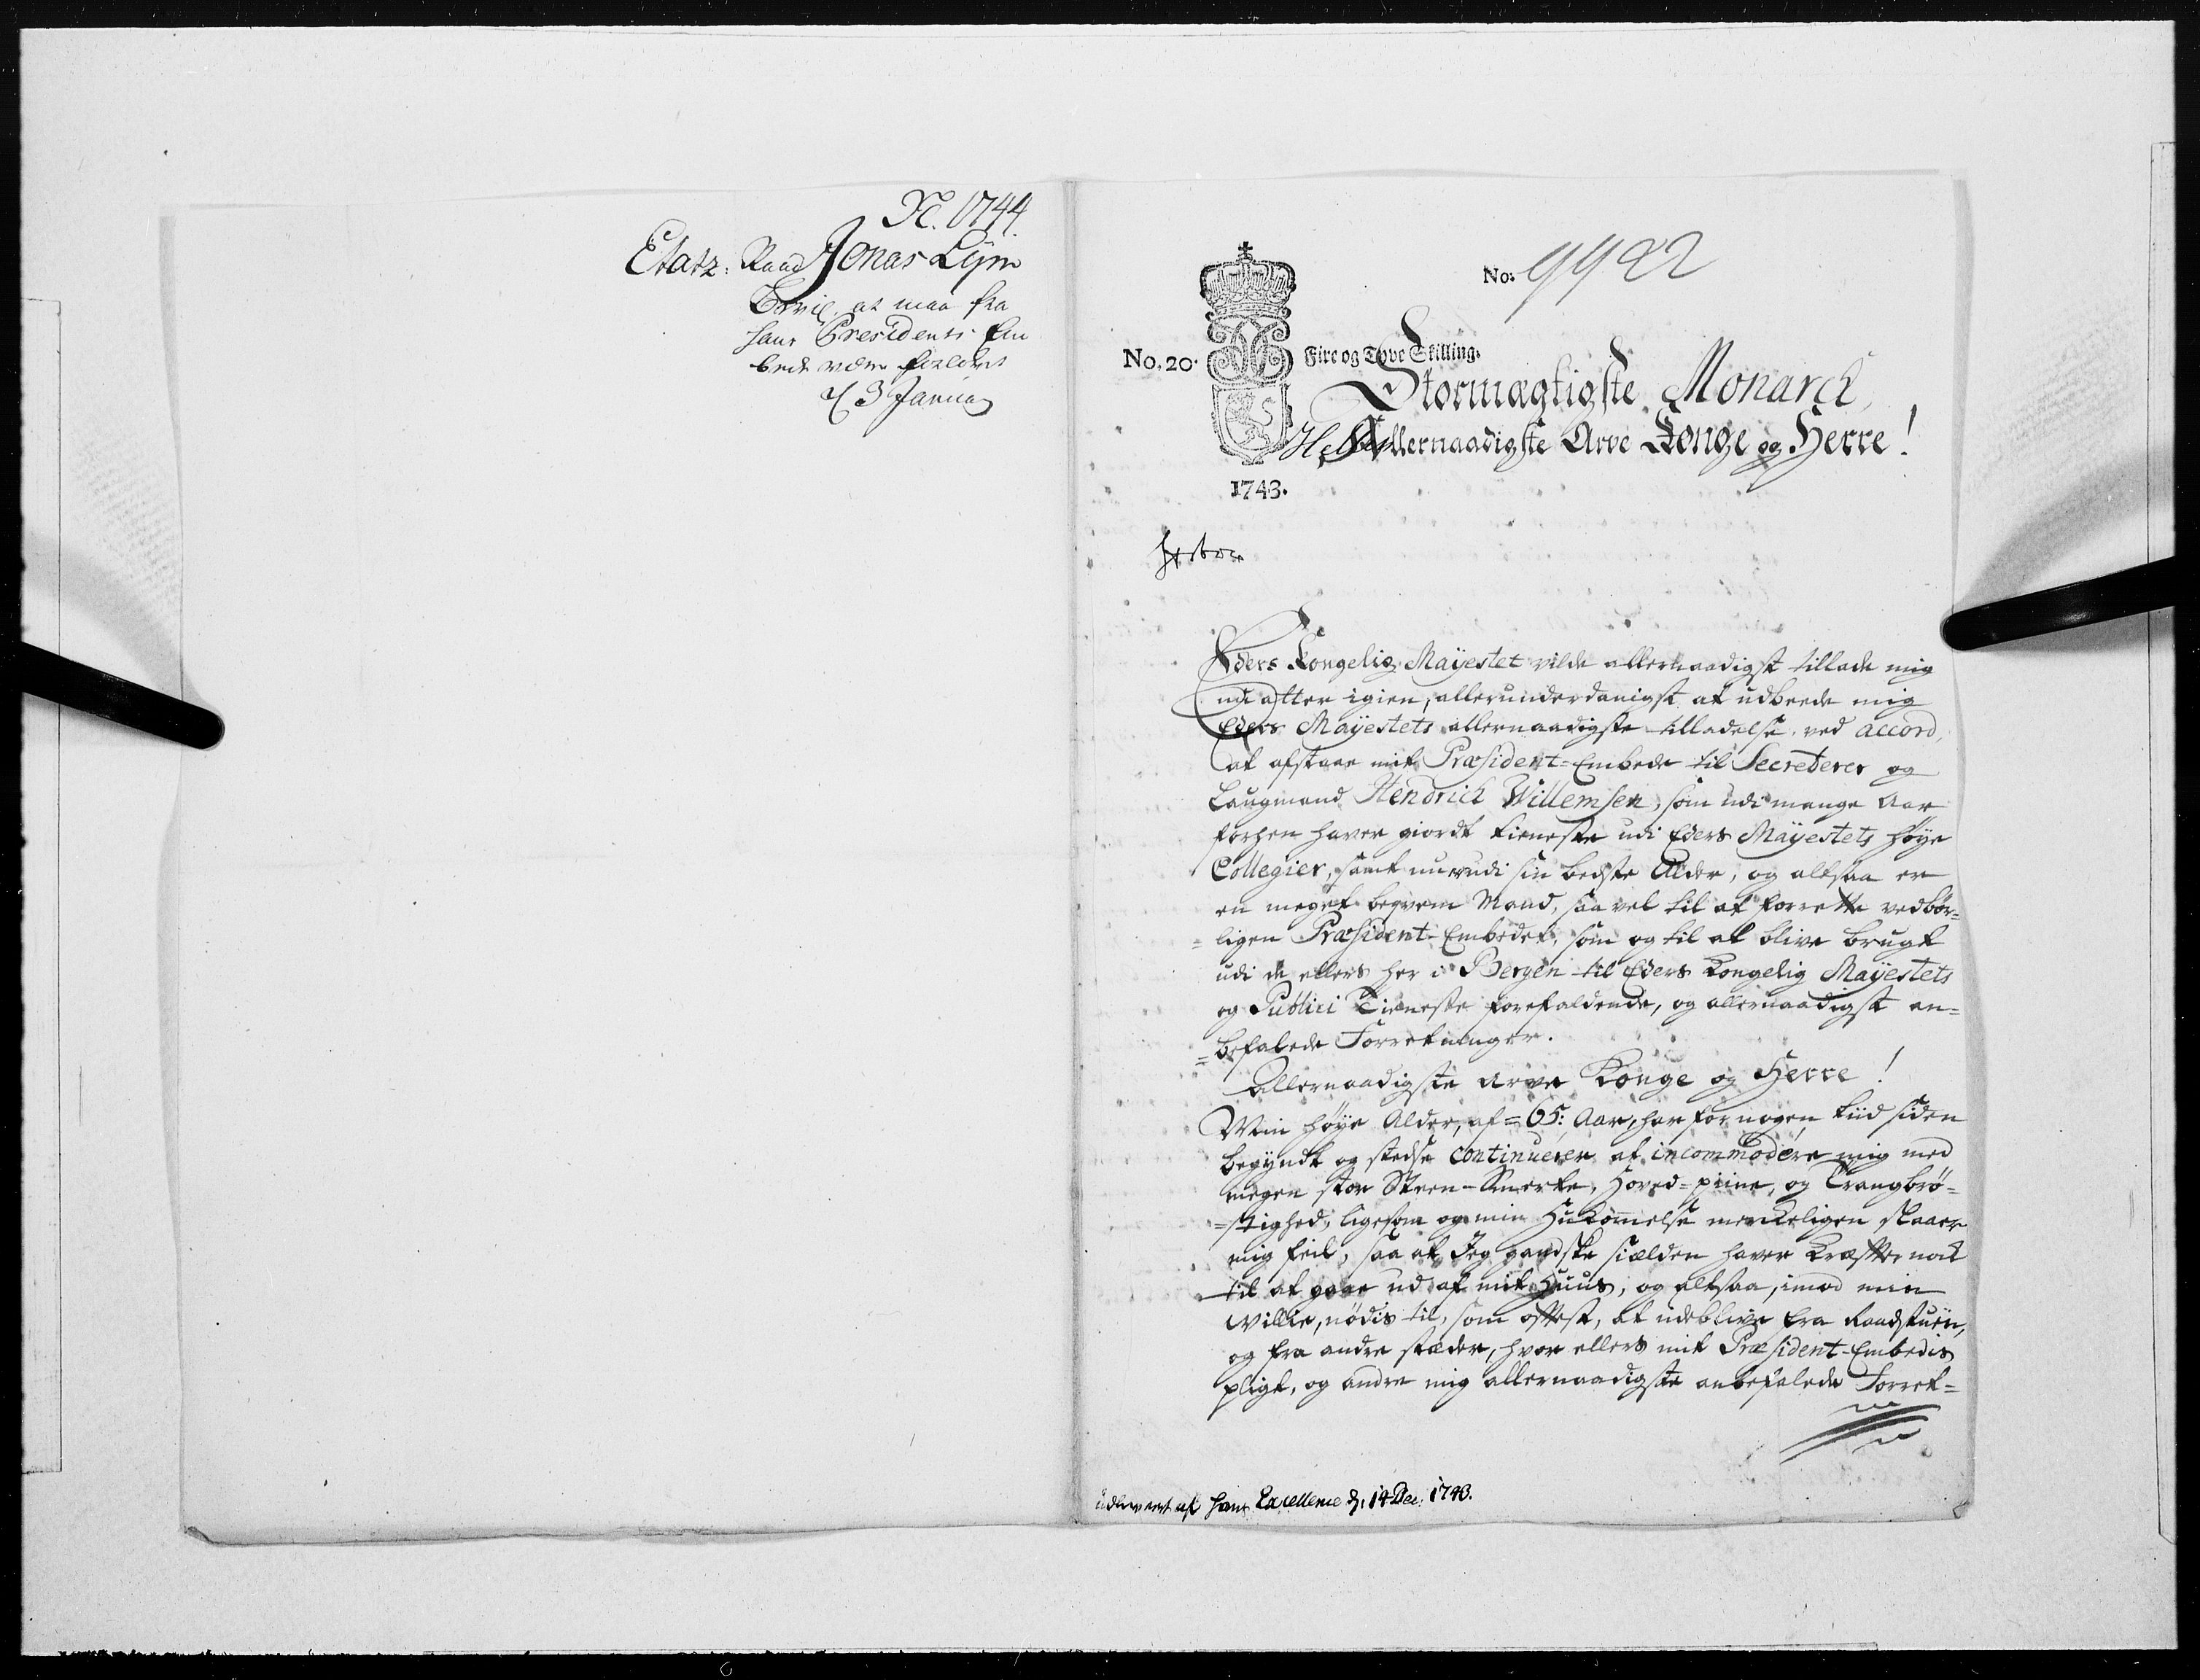 No. 1744.
Etatz: Raad Jonas Lÿm
Bevil. at maa fra
hans Presidents Em
bede være forlovet
d 3 Januar
No: 9922
No. 20.
Fire og Tyve Skilling.
Stormægtigste Monarch,
Allernaadigste Arve Konge og Herre!
1743.
Eders Kongelig Maÿestet vilde allernaadigst tillade mig
nu atter igien, allerunderdanigst at udbeede mig
Eders Maÿestets allernaadigste tilladelse, ved accord,
at afstaae mit Præsident-Embede til Secreterer og
Laugmand Hendrich Willemsen, som udi mange Aar
forhen haver giordt tieneste udi Eders Maÿestets høÿe
Collegier, samt nu er udi sin bedste Alder, og altsaa er
en meget beqvem Mand, saa vel til at forrette vedbør-
=ligen Præsident-Embedet, som og til at blive brugt
udi de ellers her i Bergen til Eders Kongelig Maÿestets
og Publici Tieneste forefaldende, og allernaadigst an=
=befalede Forretninger.
Allernaadigste Arve Konge og Herre!
Min høÿe Alder, af = 65: Aar, har for nogen tiid siden
begÿndt og stedse continuerer at incommodere mig med
megen stor Steen-Smerte, Hoved=piine, og Trangbrø=
=stighed, ligesom og min Hukommelse merkeligen slaaer
mig feil, saa at Jeg gandske siælden haver Kræfter nok
til at gaae ud af mit Huus, og altsaa, imod min
Villie, nødis til, som oftest, at udeblive fra Raadstuen,
og fra andre stæder, hvor ellers mit Præsident-Embedis
pligt, og andre mig allernaadigste anbefalede Forret=
udleveret af hans Excellence d. 14 Dec. 1743.